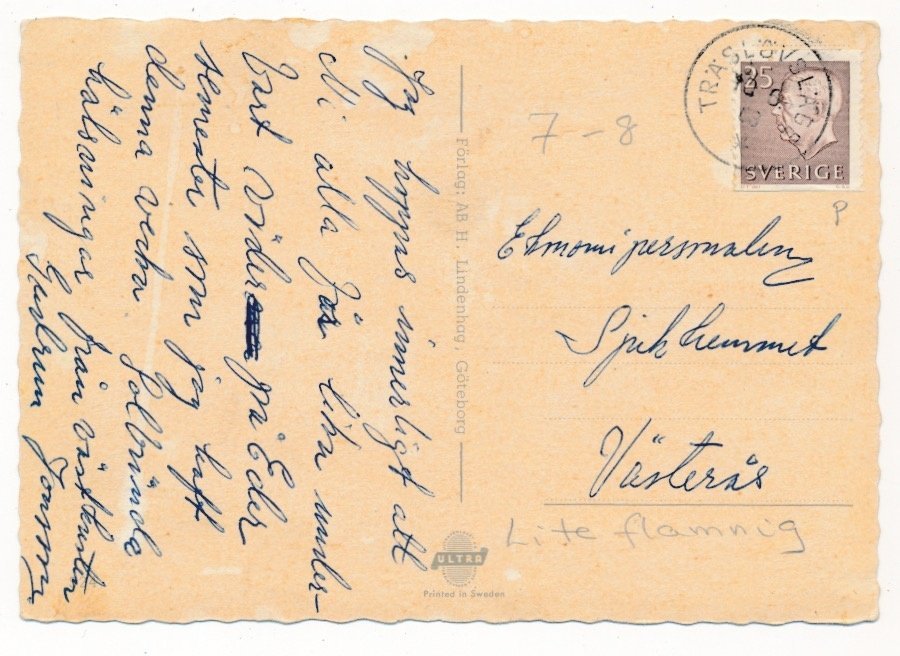 Jag hoppas innerligt att
Ni alla får lika under-
bart väder på Eder
semester som jag haft
denna vecka. Solbrända
hälsningar från västkusten
Jonsson
Förlag: AB H. Lindenhag, Göteborg
ULTRA
Printed in Sweden
7-8
TRÄSLÖVSLÄGE
25
SVERIGE
P
Ekonomipersonalen
Sjukhemmet
Västerås
Lite flammig